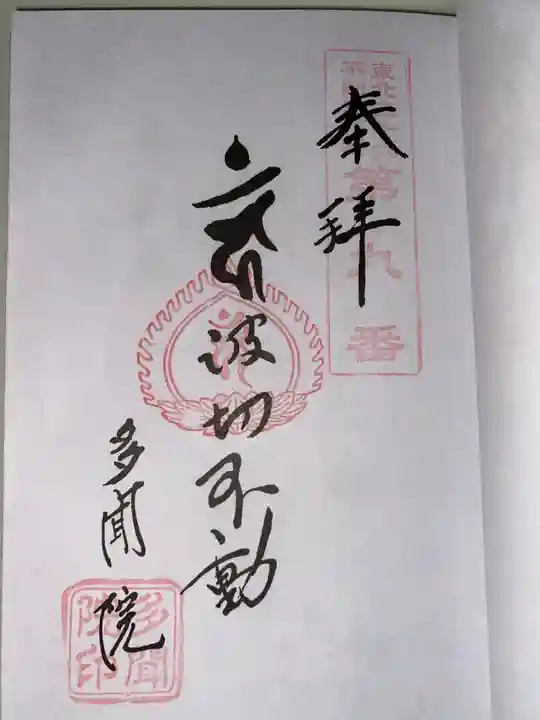 奉拝
第九番
波切不動
多聞院
多聞院印